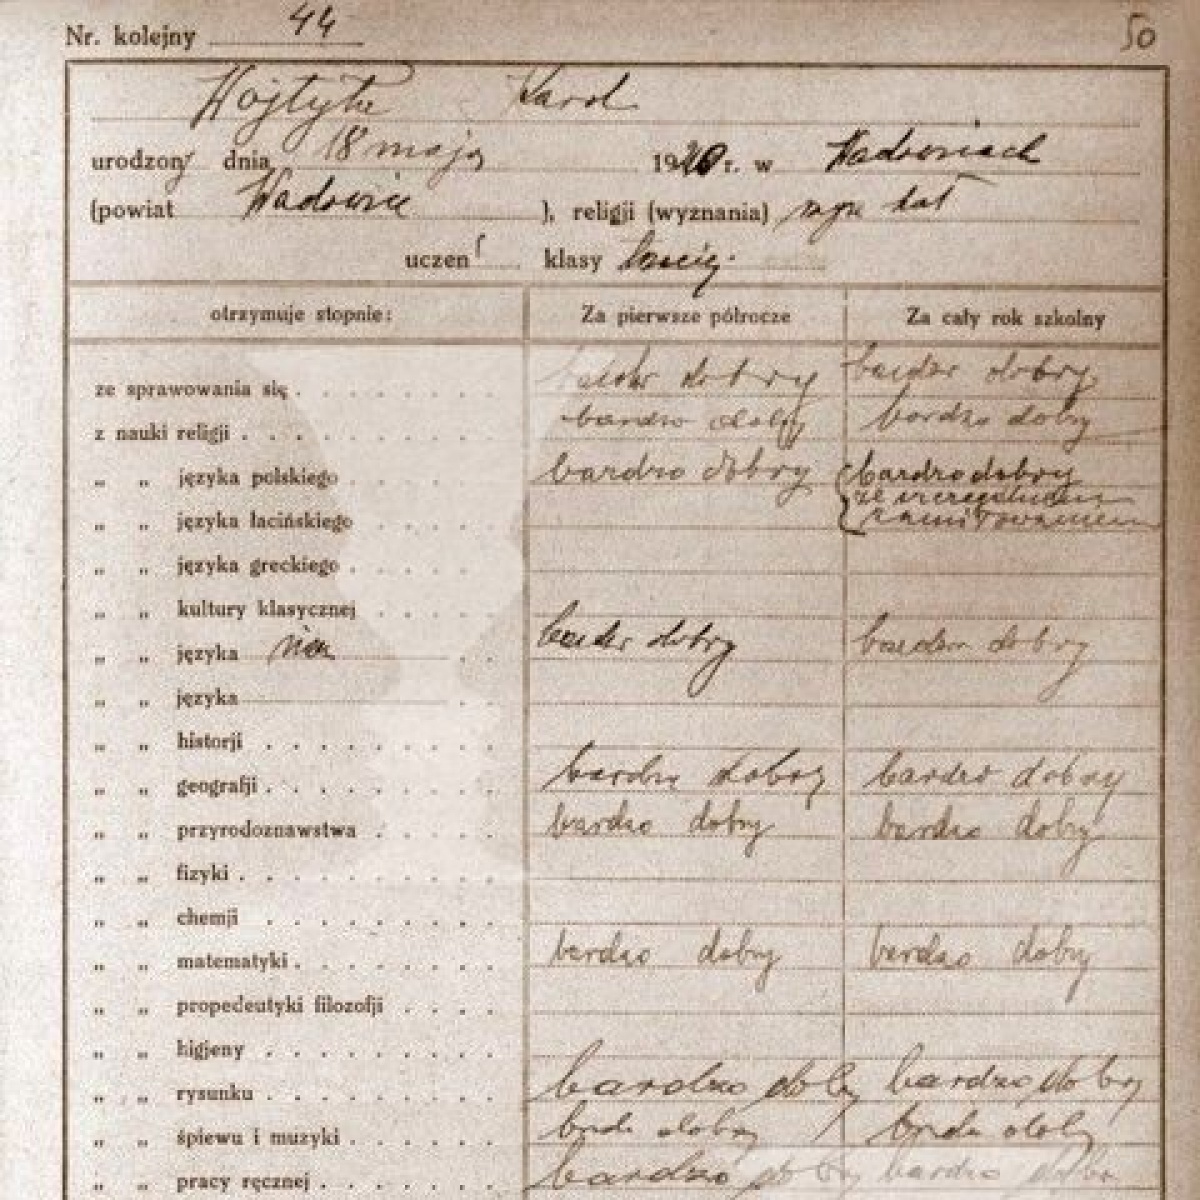 Nr. kolejny 44 50
Wojtyła Karol
urodzony dnia 18 maja 1920 r. w Wadowicach
(powiat Wadowice ), religji (wyznania) rzym kat
uczeń klasy
otrzymuje stopnie: Za pierwsze półrocze Za cały rok szkolny
ze sprawowania się . . . . . . . . bardzo dobry bardzo dobry
z nauki religji . . . . . . . . . bardzo dobry bardzo dobry
„ „ języka polskiego . . . . bardzo dobry bardzo dobry
ze szczególnem
„ „ języka łacińskiego . . . . zamiłowaniem
„ „ języka greckiego . . . .
„ „ kultury klasycznej . . . .
„ „ języka niem . . bardzo dobry bardzo dobry
„ „ języka . .
„ „ historji . . . . . . . .
„ „ geografji . . . . . . . . bardzo dobry bardzo dobry
„ „ przyrodoznawstwa . . . . bardzo dobry bardzo dobry
„ „ fizyki . . . . . . . . .
„ „ chemji . . . . . . . .
„ „ matematyki . . . . . . . bardzo dobry bardzo dobry
„ „ propedeutyki filozofji . . . .
„ „ higjeny . . . . . . . .
„ „ rysunku . . . . . . . . bardzo dobry bardzo dobry
„ „ śpiewu i muzyki . . . . . bardzo dobry bardzo dobry
„ „ pracy ręcznej . . . . . . bardzo dobry bardzo dobry